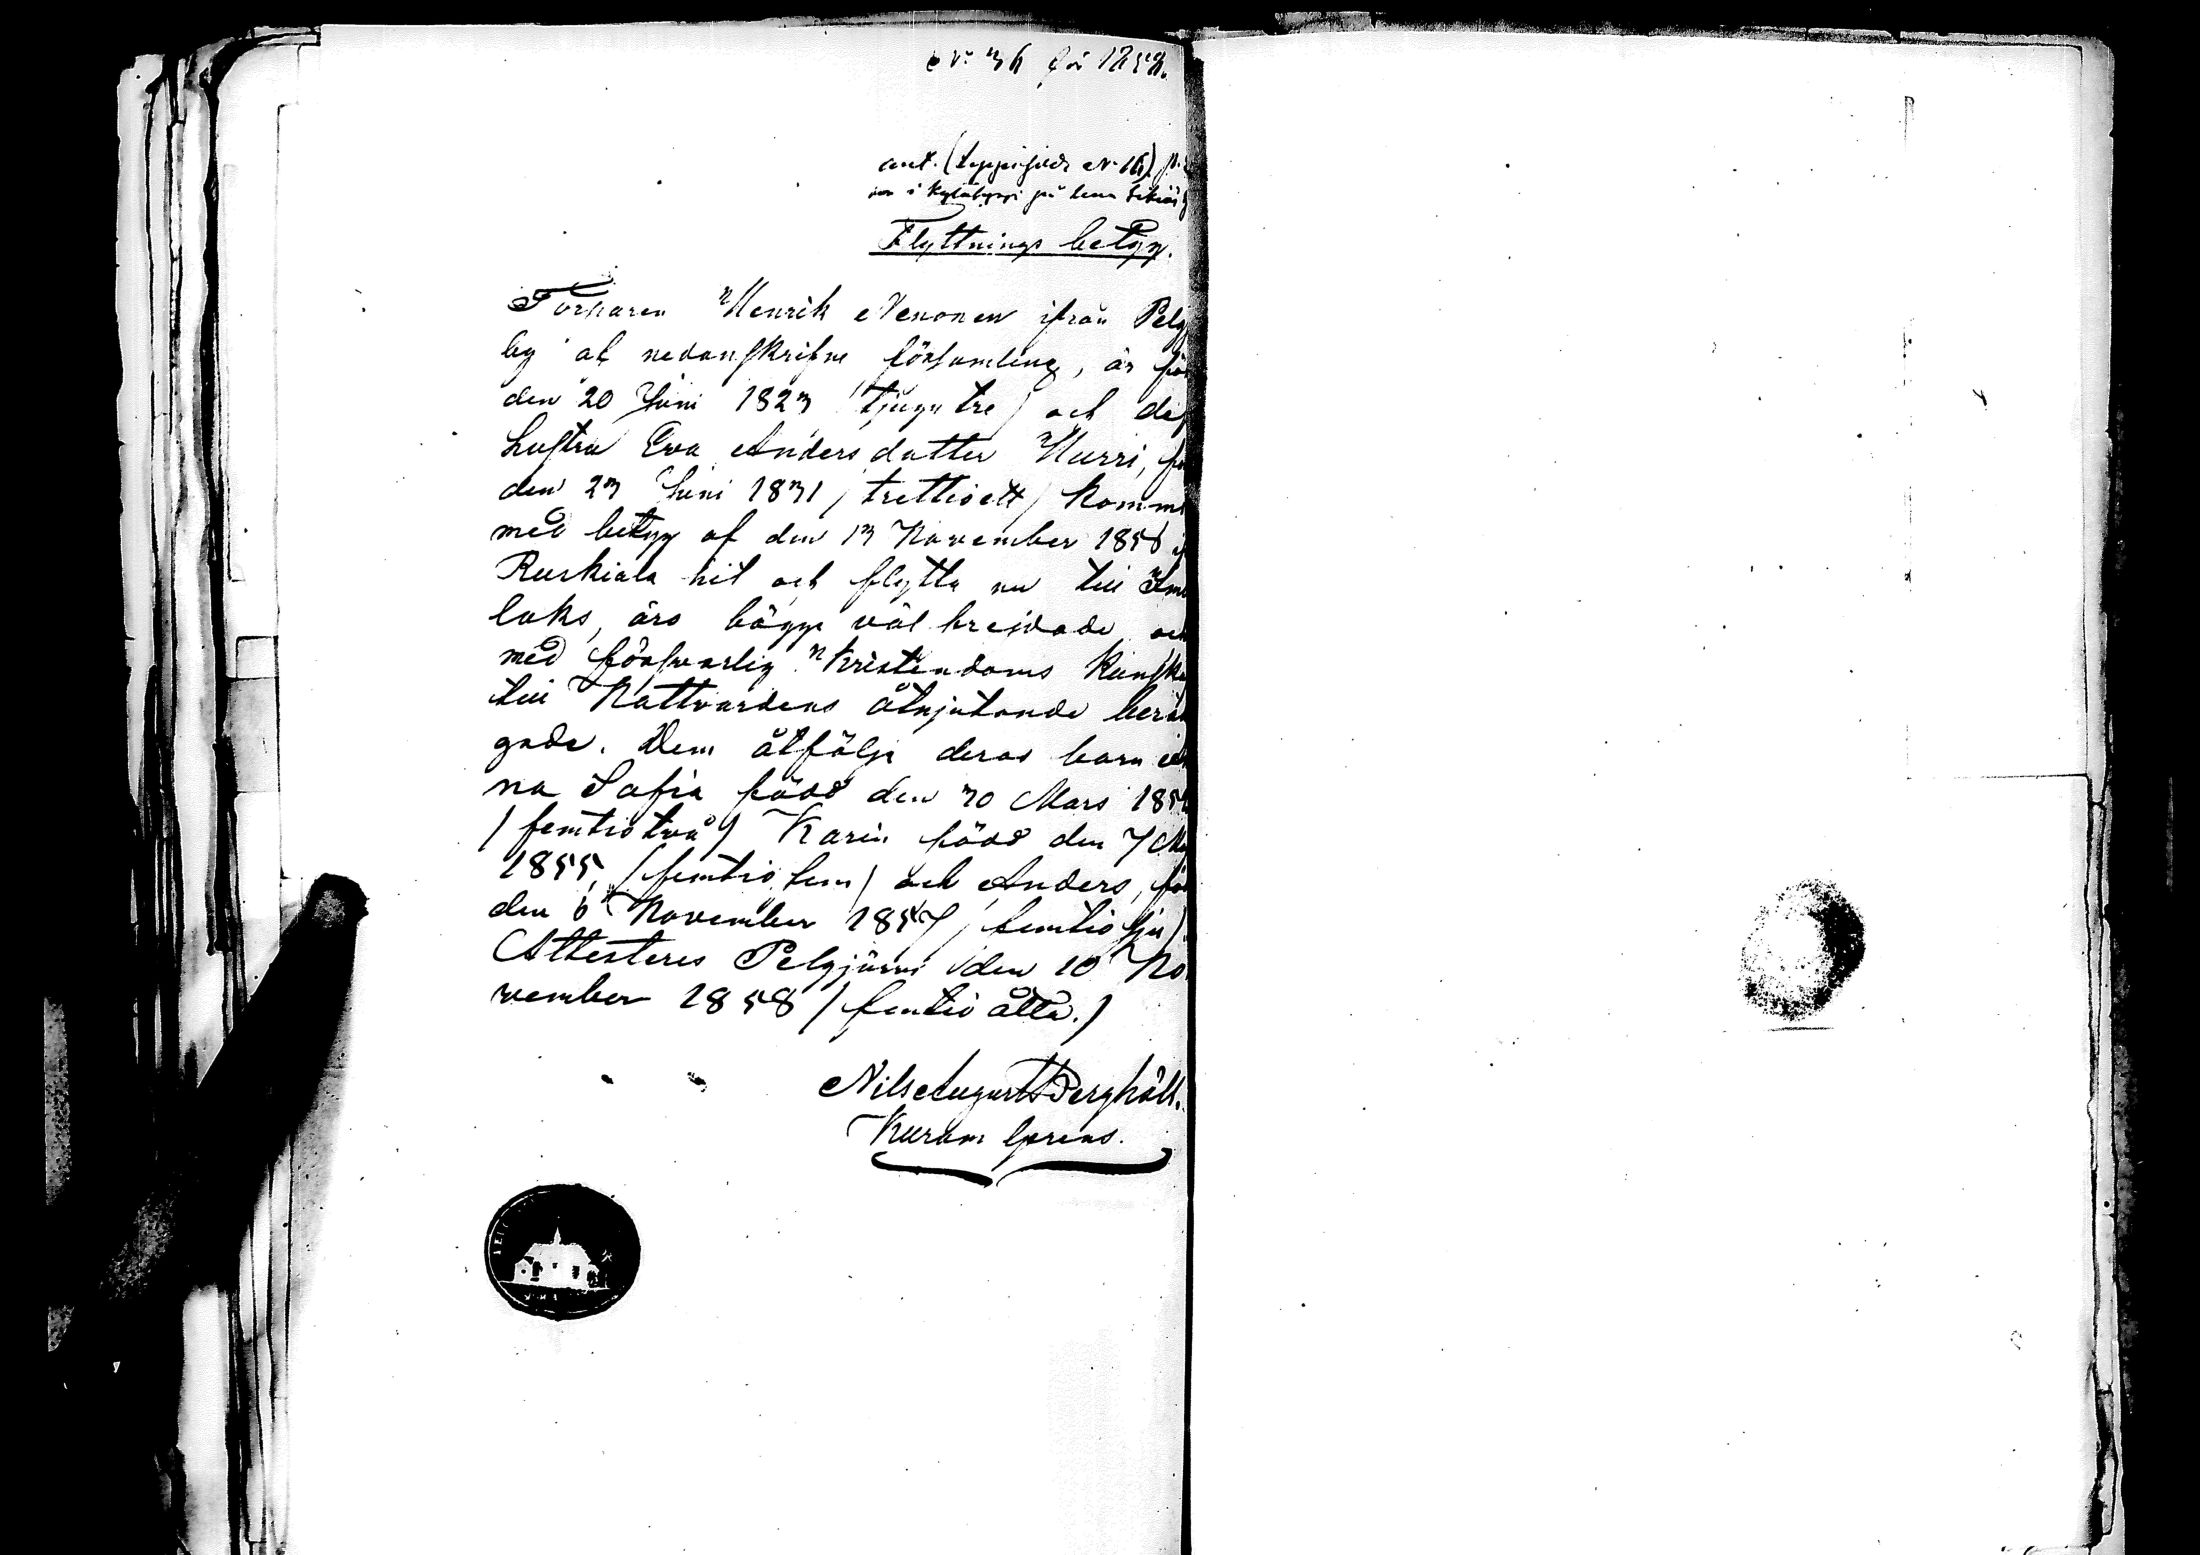 N:o 36 för 1858.
ant. (Leppäsyrjä N:o 16)
i Kyläläppi på
Flyttnings betyg.
Torparen Henrik Nenonen ifrån Pelg
by af nedanskrifne församling, är föd
den 20 Juni 1823 /tjugutre/ och dess
hustru Eva Andersdotter Hurri, fö
den 23 Juni 1831 /trettioett/ komm
med betyg af den 13 November 1856 if
Ruskiala hit och flytta nu till Im
laks, äro bägge väl frejdade och
med försvarlig Kristendoms kunska
till Nattvardens åtnjutande berät
gade. Dem åtfölja deras barn An
na Sofia född den 30 Mars 1852
/femtiotvå/ Karin född den 7 Ma
1855, /femtiofem/ och Anders, föd
den 6 November 1857 /femtiosju/.
Attesteres Pelgjärvi den 10 No
vember 1858 /femtioåtta./
Nils August Berghäll.
Kuram gerens.